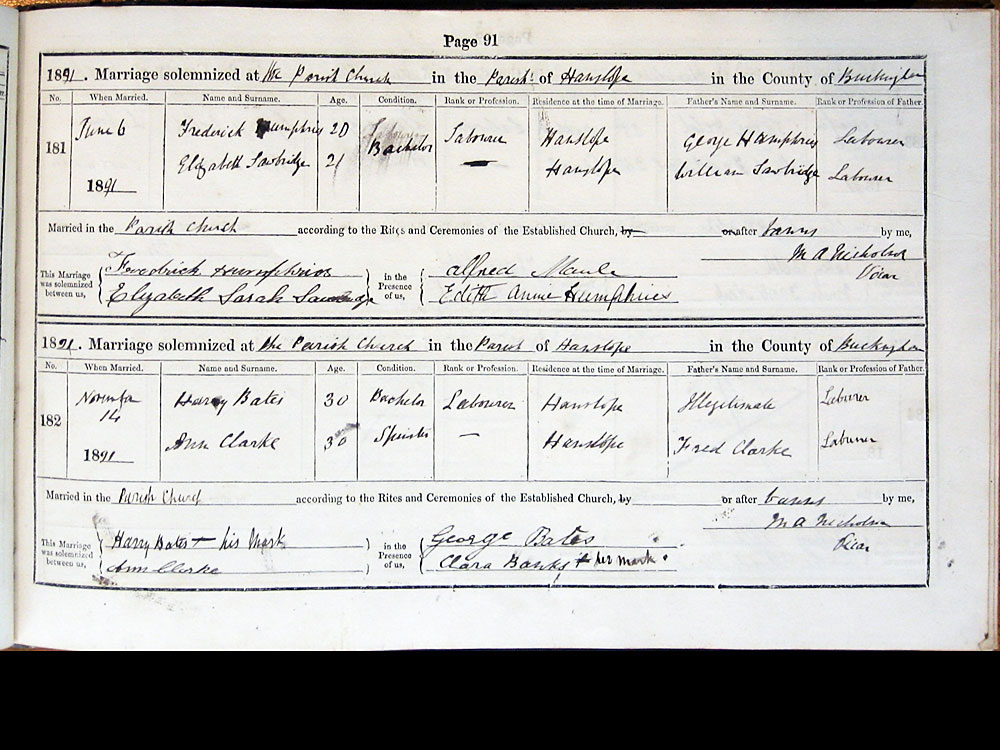 Page 91
1891. Marriage solemnized at the Parish Church in the Parish of Hanslope in the County of Buckingham
No. When Married. Name and Surname. Age. Condition. Rank or Profession. Residence at the time of Marriage. Father's Name and Surname. Rank or Profession of Father.
181 June 6 Frederick Humphries 20 Bachelor Labourer Hanslope George Humphries Labourer
1891 Elizabeth Sawbridge 21 — Hanslope William Sawbridge Labourer
Married in the Parish Church according to the Rites and Ceremonies of the Established Church, by or after banns by me,
M A Nicholson
Vicar
This Marriage was solemnized between us, Frederick Humphries in the Presence of us, Alfred Maule
Elizabeth Sarah Sawbridge Edith Annie Humphries
1891. Marriage solemnized at the Parish Church in the Parish of Hanslope in the County of Buckingham
No. When Married. Name and Surname. Age. Condition. Rank or Profession. Residence at the time of Marriage. Father's Name and Surname. Rank or Profession of Father.
182 November 14 Harry Bates 30 Bachelor Labourer Hanslope Illegitimate Labourer
1891 Ann Clarke 30 Spinster — Hanslope Fred Clarke Labourer
Married in the Parish Church according to the Rites and Ceremonies of the Established Church, by or after banns by me,
M A Nicholson
Vicar
This Marriage was solemnized between us, Harry Bates + his Mark in the Presence of us, George Bates
Ann Clarke Clara Banks + her mark.